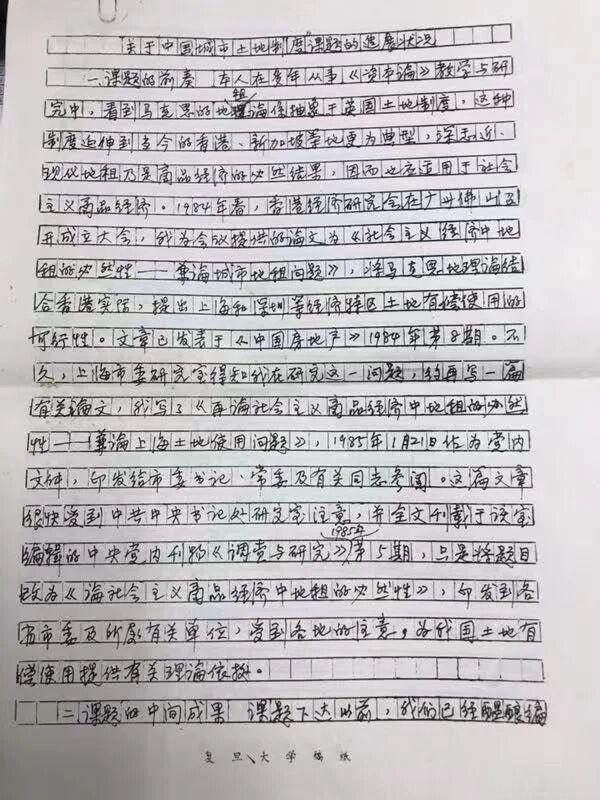 关于中国城市土地制度课题的进展状况
一、课题的前奏 本人在多年从事《资本论》教学与研
究中，看到马克思的地租理论像抽象于英国土地制度，这种
制度延伸到当今的香港、新加坡等地更为典型，深知近、
现代地租乃是商品经济的必然结果，因而也应适用于社会
主义商品经济。1984年春，香港经济研究会在广州佛山召
开成立大会，我为会议提供的论文为《社会主义经济中地
租的必然性——兼论城市地租问题》，将马克思地理论结
合香港实际，提出上海和深圳等经济特区土地有偿使用的
可行性。文章已发表于《中国房地产》1984年第8期。不
久，上海市委研究室得知我在研究这一问题，约再写一篇
有关论文，我写了《再论社会主义商品经济中地租的必然
性——兼论上海土地使用问题》，1985年1月21日作为党内
文件，印发给市委书记、常委及有关同志参阅。这篇文章
很快受到中共中央书记处研究室注意，并全文刊载于该室
编辑的中央党内刊物《调查与研究》1985年第5期，只是将题目
改为《论社会主义商品经济中地租的必然性》，印发到各
省市委及所属有关单位，受到各地的注意，为我国土地有
偿使用提供有关理论依据。
二、课题的中间成果 课题下达以前，我们已经酝酿编
复旦大学稿纸